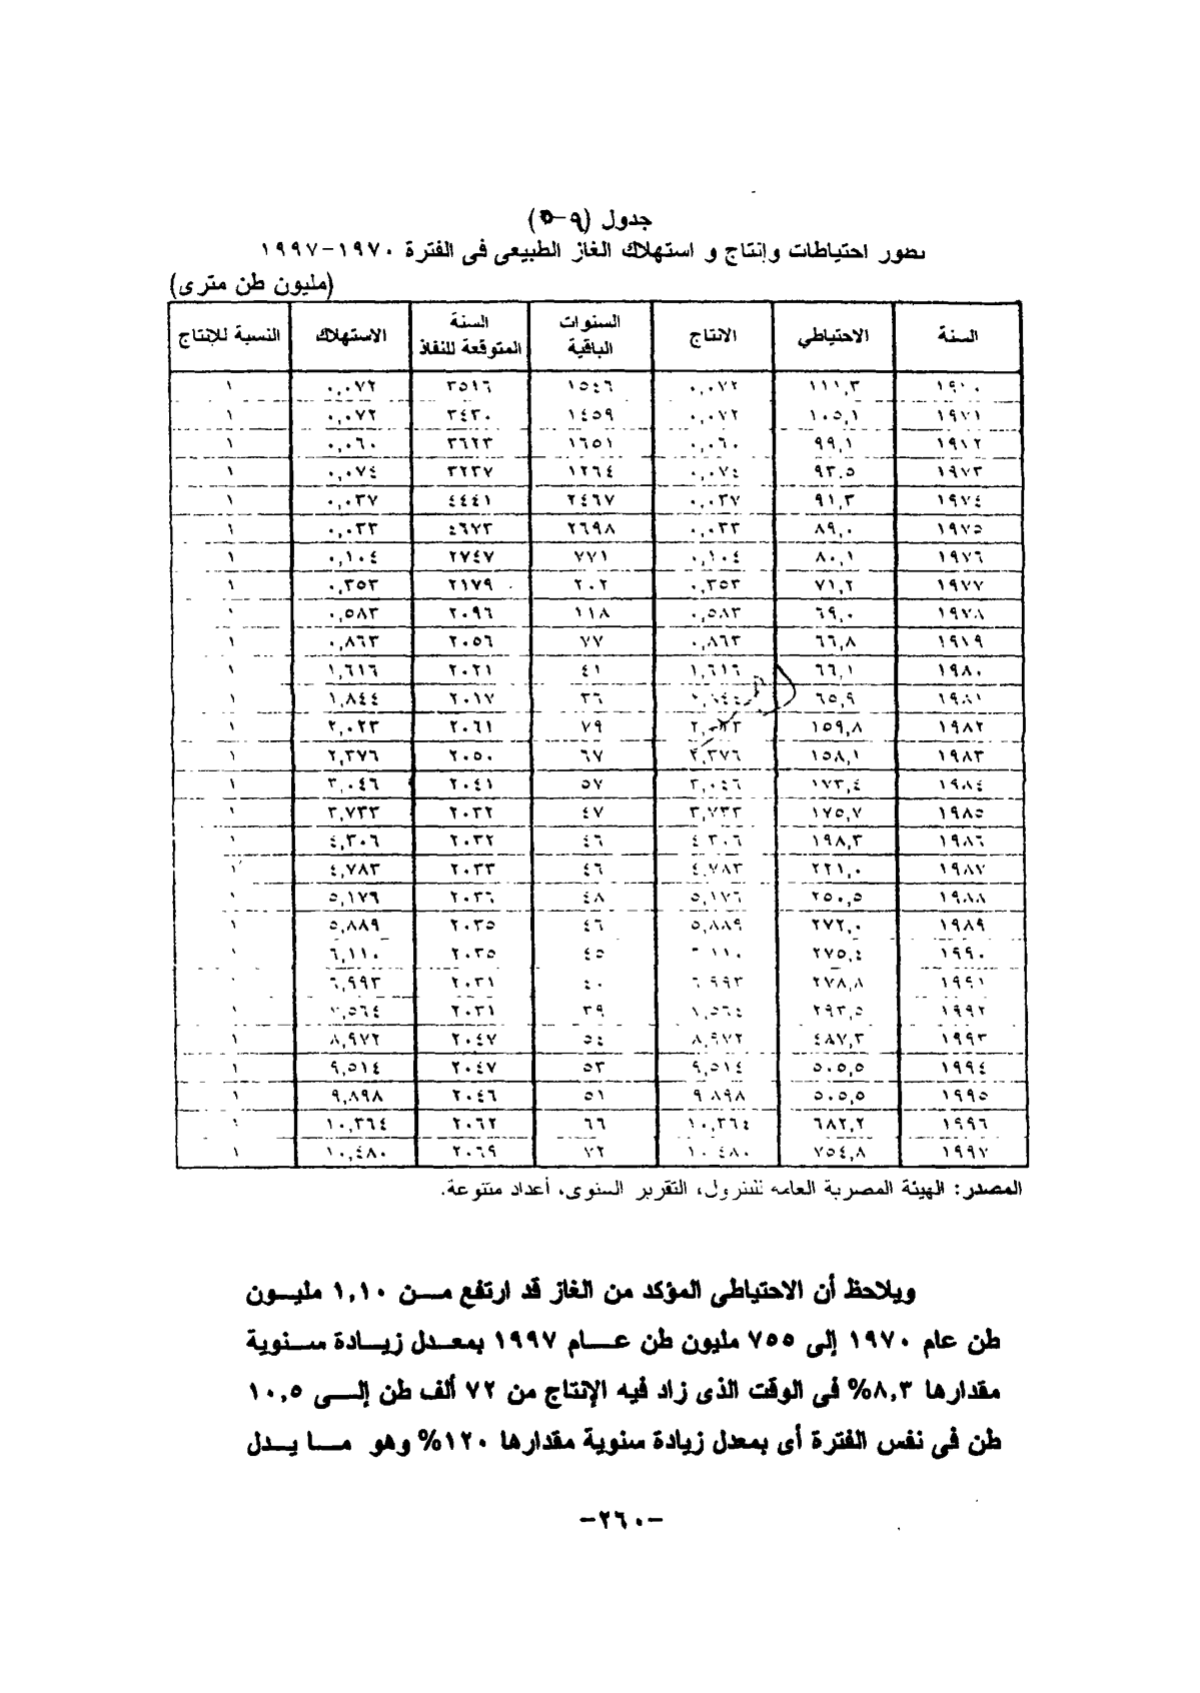 جدول (٩-٥)
تطور احتياطات وإنتاج و استهلاك الغاز الطبيعى فى الفترة ١٩٧٠-١٩٩٧
(مليون طن مترى)
السنة الاحتياطي الانتاج السنوات الباقية السنة المتوقعة للنفاذ الاستهلاك النسبة للإنتاج
١٩٧٠ ١١١,٣ ٠,٠٧٢ ١٥٤٦ ٣٥١٦ ٠,٠٧٢ ١
١٩٧١ ١٠٥,١ ٠,٠٧٢ ١٤٥٩ ٣٤٣٠ ٠,٠٧٢ ١
١٩٧٢ ٩٩,١ ٠,٠٦٠ ١٦٥١ ٣٦٢٣ ٠,٠٦٠ ١
١٩٧٣ ٩٣,٥ ٠,٠٧٤ ١٢٦٤ ٣٢٣٧ ٠,٠٧٤ ١
١٩٧٤ ٩١,٣ ٠,٠٣٧ ٢٤٦٧ ٤٤٤١ ٠,٠٣٧ ١
١٩٧٥ ٨٩,٠ ٠,٠٣٣ ٢٦٩٨ ٤٦٧٣ ٠,٠٣٣ ١
١٩٧٦ ٨٠,١ ٠,١٠٤ ٧٧١ ٢٧٤٧ ٠,١٠٤ ١
١٩٧٧ ٧١,٢ ٠,٣٥٣ ٢٠٢ ٢١٧٩ ٠,٣٥٣ ١
١٩٧٨ ٦٩,٠ ٠,٥٨٣ ١١٨ ٢٠٩٦ ٠,٥٨٣ ١
١٩٧٩ ٦٦,٨ ٠,٨٦٣ ٧٧ ٢٠٥٦ ٠,٨٦٣ ١
١٩٨٠ ٦٦,١ ١,٦١٦ ٤١ ٢٠٢١ ١,٦١٦ ١
١٩٨١ ٦٥,٩ ١,٨٤٤ ٣٦ ٢٠١٧ ١,٨٤٤ ١
١٩٨٢ ١٥٩,٨ ٢,٠٢٣ ٧٩ ٢٠٦١ ٢,٠٢٣ ١
١٩٨٣ ١٥٨,١ ٢,٣٧٦ ٦٧ ٢٠٥٠ ٢,٣٧٦ ١
١٩٨٤ ١٧٣,٤ ٣,٠٤٦ ٥٧ ٢٠٤١ ٣,٠٤٦ ١
١٩٨٥ ١٧٥,٧ ٣,٧٣٣ ٤٧ ٢٠٣٢ ٣,٧٣٣ ١
١٩٨٦ ١٩٨,٣ ٤,٣٠٦ ٤٦ ٢٠٣٢ ٤,٣٠٦ ١
١٩٨٧ ٢٢١,٠ ٤,٧٨٣ ٤٦ ٢٠٣٣ ٤,٧٨٣ ١
١٩٨٨ ٢٥٠,٥ ٥,١٧٦ ٤٨ ٢٠٣٦ ٥,١٧٦ ١
١٩٨٩ ٢٧٢,٠ ٥,٨٨٩ ٤٦ ٢٠٣٥ ٥,٨٨٩ ١
١٩٩٠ ٢٧٥,٤ ٦,١١٠ ٤٥ ٢٠٣٥ ٦,١١٠ ١
١٩٩١ ٢٧٨,٨ ٦,٩٩٣ ٤٠ ٢٠٣١ ٦,٩٩٣ ١
١٩٩٢ ٢٩٣,٥ ٧,٥٦٤ ٣٩ ٢٠٣١ ٧,٥٦٤ ١
١٩٩٣ ٤٨٧,٣ ٨,٩٧٢ ٥٤ ٢٠٤٧ ٨,٩٧٢ ١
١٩٩٤ ٥٠٥,٥ ٩,٥١٤ ٥٣ ٢٠٤٧ ٩,٥١٤ ١
١٩٩٥ ٥٠٥,٥ ٩,٨٩٨ ٥١ ٢٠٤٦ ٩,٨٩٨ ١
١٩٩٦ ٦٨٢,٢ ١٠,٣٦٤ ٦٦ ٢٠٦٢ ١٠,٣٦٤ ١
١٩٩٧ ٧٥٤,٨ ١٠,٤٨٠ ٧٢ ٢٠٦٩ ١٠,٤٨٠ ١
المصدر: الهيئة المصرية العامة للبترول، التقرير السنوى، أعداد متنوعة.
ويلاحظ أن الاحتياطى المؤكد من الغاز قد ارتفع مــن ١,١٠ مليــون
طن عام ١٩٧٠ إلى ٧٥٥ مليون طن عــام ١٩٩٧ بمعدل زيــادة سنوية
مقدارها ٨,٣% فى الوقت الذى زاد فيه الإنتاج من ٧٢ ألف طن إلــى ١٠,٥
طن فى نفس الفترة أى بمعدل زيادة سنوية مقدارها ١٢٠% وهو مــا يــدل
-٢٦٠-